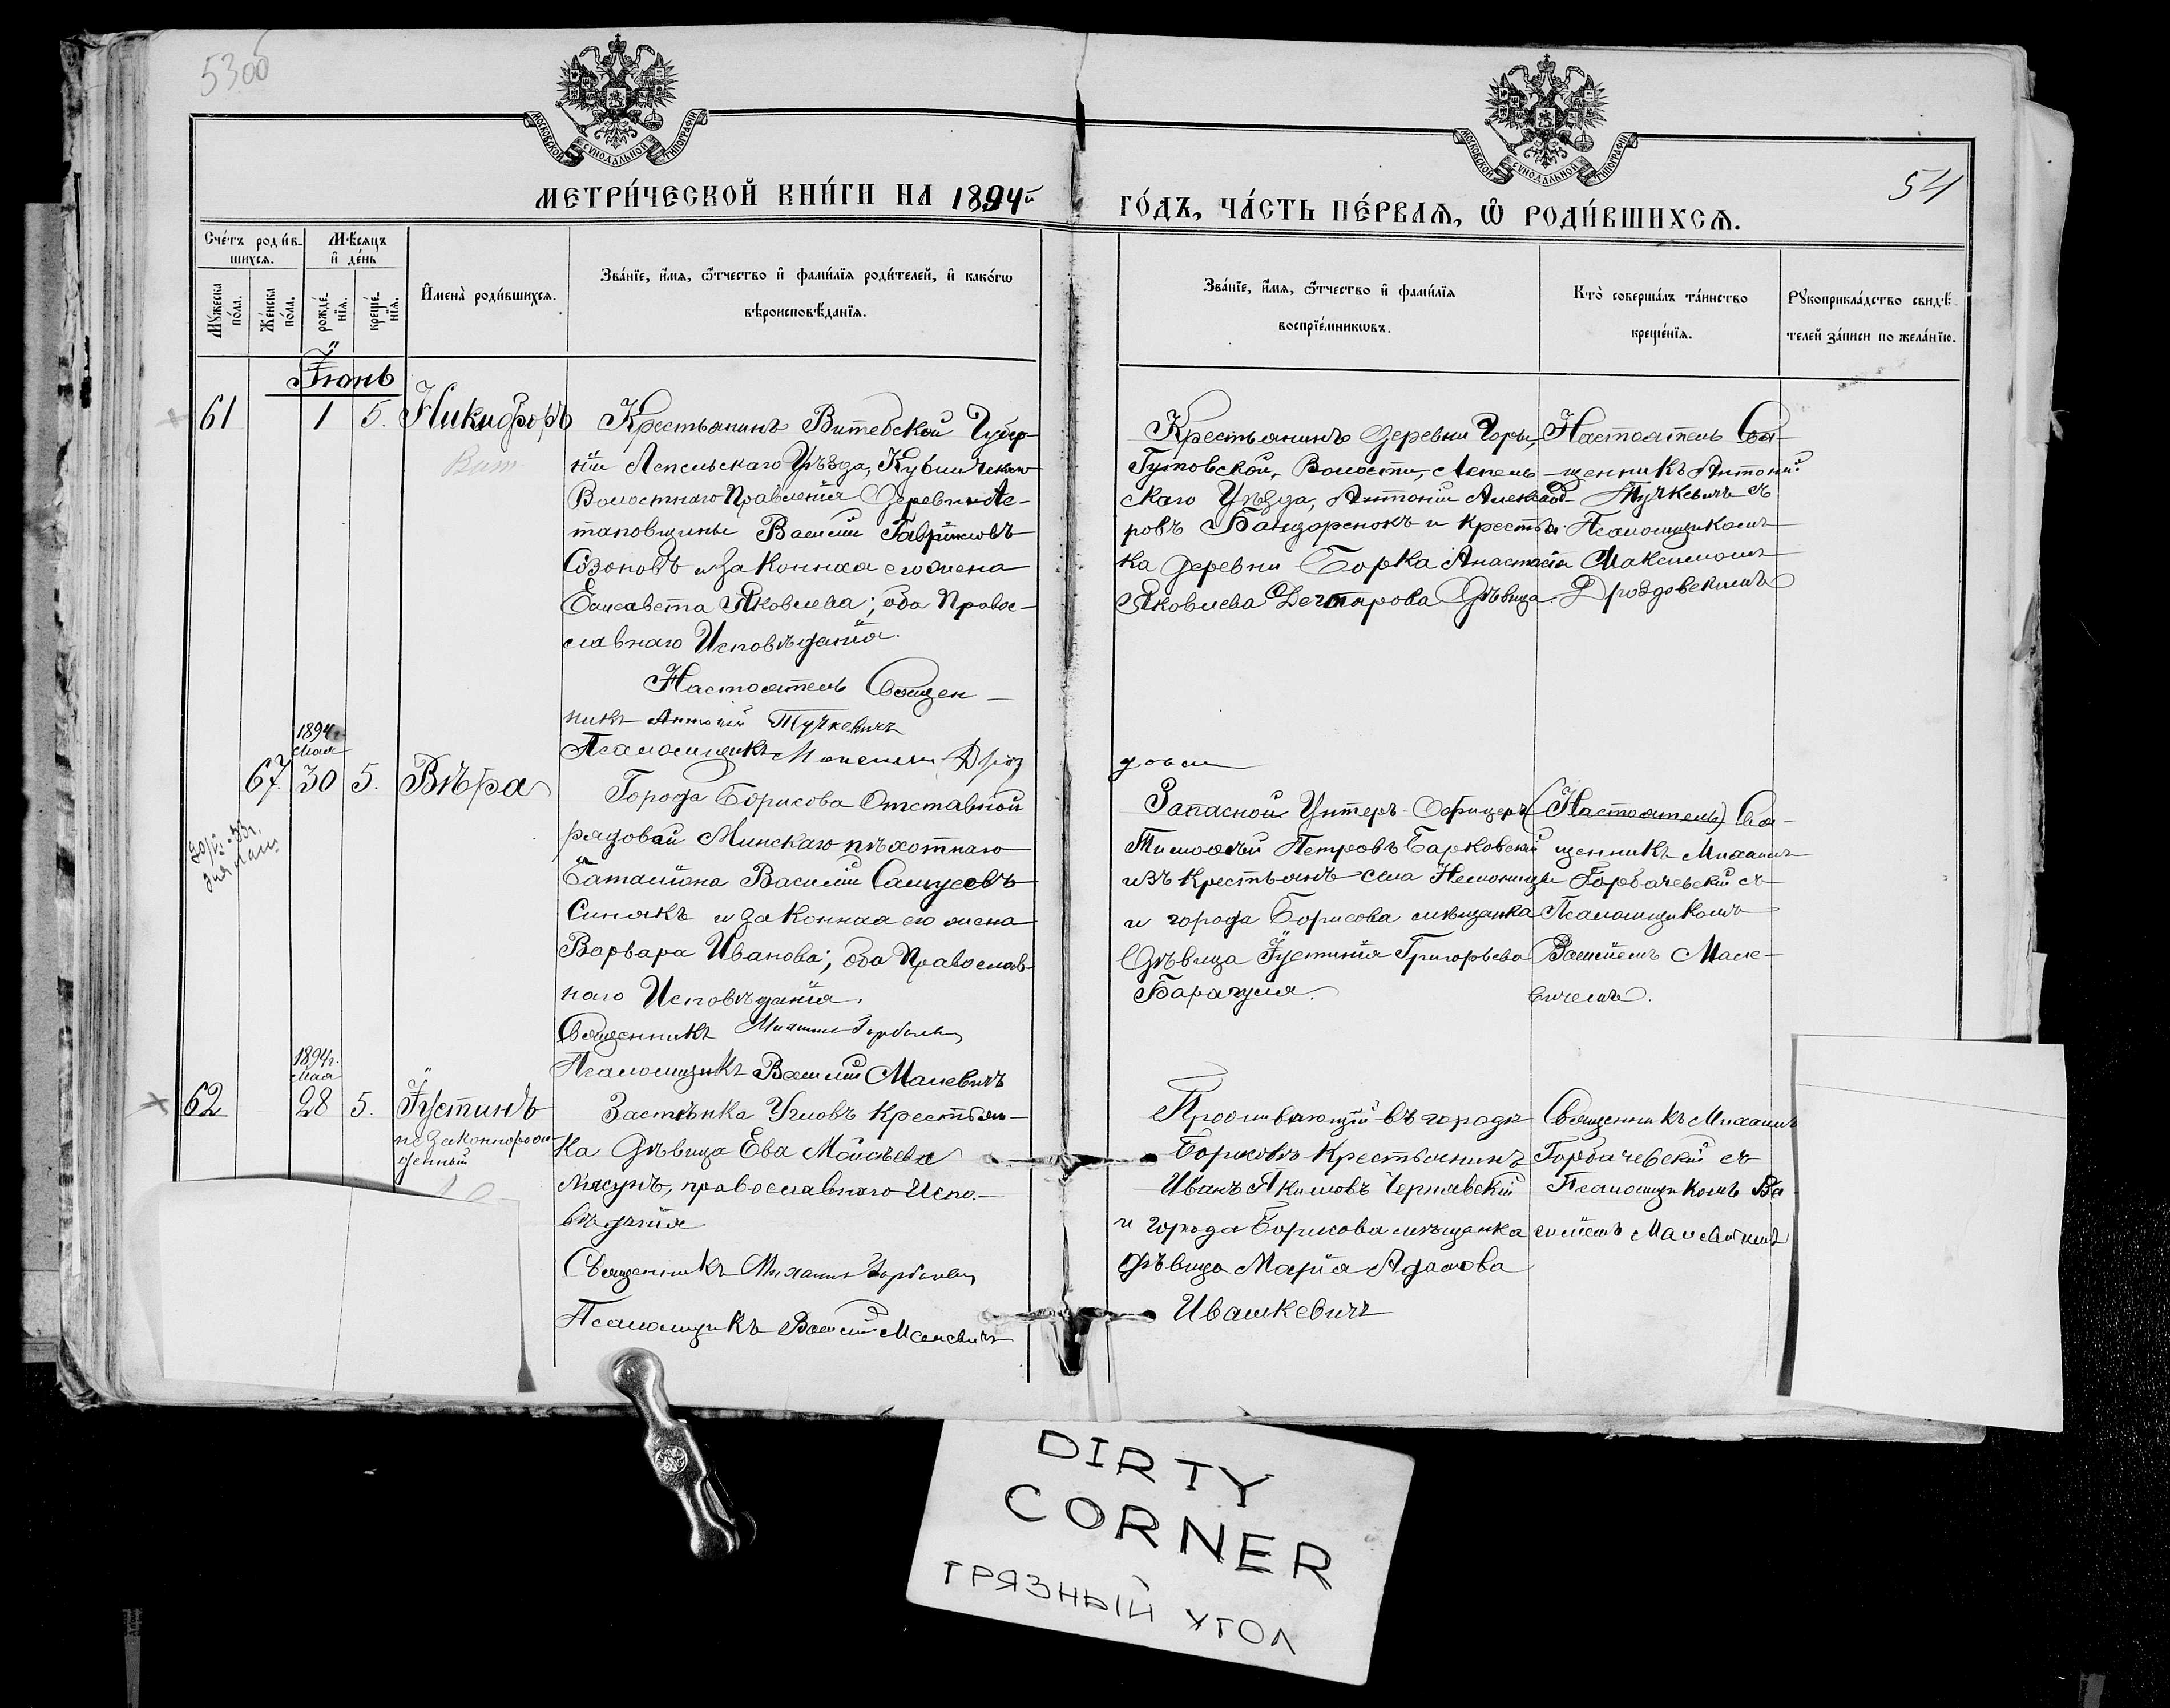 53об
54
МОСКОВСКОЙ СУНОДАЛЬНОЙ ТИПОГРАФІИ
МОСКОВСКОЙ СУНОДАЛЬНОЙ ТИПОГРАФІИ
МЕТРИ́ЧЕСКОЙ КНИ́ГИ НА 1894й
ГО́ДЪ, ЧА́СТЬ ПЕ́РВАѦ, Ѡ҆ РОДИ́ВШИХСѦ.
Сче́тъ роди́в-
шихсѧ.
Мѣ́сѧцъ
и҆ де́нь
Мꙋ́жеска
по́ла.
Же́нска
по́ла.
рожде́-
нїѧ.
креще́-
нїѧ.
И҆мена̀ роди́вшихсѧ.
Зва́нїе, и҆́мѧ, ѻ҆́тчество и҆ фами́лїѧ роди́телей, и҆ како́гѡ
вѣроисповѣ́данїѧ.
Зва́нїе, и҆́мѧ, ѻ҆́тчество и҆ фами́лїѧ
воспрїе́мникѡвъ.
Кто̀ соверша́лъ та́инство
креще́нїѧ.
Рꙋкоприкла́дство свидѣ́-
телей за́писи по жела́нїю.
Іюнь
61 1 5. Никифоръ
Вит
Крестьянинъ Витебской Губер-
ніи Лепельскаго Уѣзда, Кубличскаго
Волостнаго Правленія Деревни Ас-
тановщины Василій Гавріиловъ
Созоновъ и законная его жена
Елисавета Яковлева; оба Правос-
славнаго Исповѣданія.
Настоятель Священ-
никъ Антоній Тучкевичъ
Псаломщикъ Дроз
довск
Крестьянинъ деревни Горы,
Волости, Лепель-
скаго Уѣзда, Антоній Александ-
ровъ Бандаренокъ и крестья-
ка деревни Борка Анастасія
Яковлева Дегтярова Дѣвица.
Настоятель Свя-
щенникъ Антоній
Тучкевичъ съ
Псаломщикомъ
Максимомъ
Дроздовскимъ
1894г.
Мая
67. 30 5. Вѣра
Города Борисова Отставной
рядовой Минскаго пѣхотнаго
баталіона Василій
Синякъ и законная его жена
Варвара Иванова; оба Православ-
наго Исповѣданія.
Священникъ Михаилъ Горбачев
Псаломщикъ Василій Малевичъ
Запасной Унтеръ-Офицеръ
Тимоѳей Петровъ Барковскій
изъ крестьянъ села Немоницы
и города Борисова мѣщанка
Дѣвица Іустинія Григорьева
Барагуля.
(Настоятель) Свя-
щенникъ Михаилъ
Горбачевскій съ
Псаломщикомъ
Василіемъ Мале-
вичемъ.
1894г.
Мая
62 28 5. Іустинъ
незаконнорож-
денный
Застѣнка Угловъ крестьян-
ка Дѣвица Ева Моисѣева
православнаго Испо-
вѣданія
Священникъ Михаилъ Горбачев
Псаломщикъ Василій Малевичъ
Проживающій въ городѣ
Борисовѣ Крестьянинъ
Иванъ Якимовъ Чернявскій
и города Борисова мѣщанка
дѣвица Марія Адамова
Ивашкевичъ
Священникъ Михаилъ
Горбачевскій съ
Псаломщикомъ Ва-
силіемъ Малевичемъ
DIRTY
CORNER
ГРЯЗНЫЙ УГОЛ